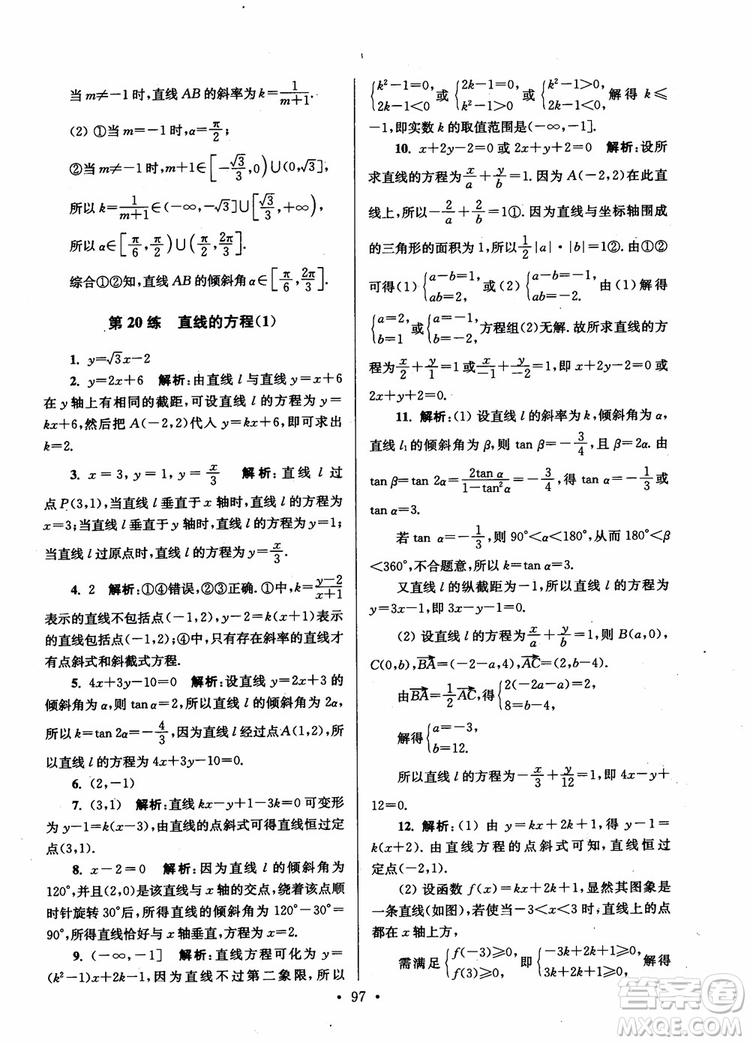 当 m≠-1 时,直线 AB 的斜率为 k=1/(m+1).
(2) ①当 m=-1 时,α=π/2;
②当 m≠-1 时,m+1∈[-√3/3,0)∪(0,√3],
所以 k=1/(m+1)∈(-∞,-√3]∪[√3/3,+∞),
所以 α∈[π/6,π/2)∪(π/2,2π/3].
综合①②知,直线 AB 的倾斜角 α∈[π/6,2π/3].
第 20 练 直线的方程(1)
1. y=√3x-2
2. y=2x+6 解析:由直线 l 与直线 y=x+6
在 y 轴上有相同的截距,可设直线 l 的方程为 y=
kx+6,然后把 A(-2,2)代入 y=kx+6,即可求出
k=2.
3. x=3, y=x/3 解析:直线 l 过
点 P(3,1),当直线 l 垂直于 x 轴时,直线方程为
x=3;当直线 l 垂直于 y 轴时,直线方程为 y=1;
当直线 l 过原点时,直线方程为 y=x/3.
4. 2 解析:①④错误,②③正确.①中,k=(y-2)/(x+1)
表示的直线不包括点(-1,2),y-2=k(x+1)表
示的直线包括点(-1,2);④中,只有存在斜率的直线才
有点斜式和斜截式方程.
5. 4x+3y-10=0 解析:设直线 y=2x+3 的
倾斜角为 α,则 tan α=2,所以直线 l 的斜率为
k=tan 2α=-4/3.又直线 l 经过点 A(1,2),所
以直线 l 的方程为 4x+3y-10=0.
6. (2,-1)
7. (3,1) 解析:直线 kx-y+1-3k=0 可变形
为 y-1=k(x-3),由直线的点斜式可得直线恒过定
点(3,1).
8. x-2=0 解析:因为直线 l 的倾斜角为
120°,并且(2,0)是该直线与 x 轴的交点,绕着该点顺
时针旋转 30°后,所得直线的倾斜角为 120°-30°=
90°,此直线恰好与 x 轴垂直,方程为 x-2=0.
9. (-∞,-1] 解析:直线方程可化为 y=
(k²-1)x+2k-1,该直线不过第二象限,所以
{k²-1=0,2k-1<0 或{k²-1>0,2k-1=0 或{k²-1>0,2k-1<0,解得 k≤
-1,即实数 k 的取值范围是(-∞,-1].
10. x+2y-2=0 或 2x+y+2=0 解析:设所
求直线的方程为 x/a+y/b=1.因为 A(-2,2)在此直
线上,所以-2/a+2/b=1①.因为直线与坐标轴围成
的三角形的面积为 1,所以 1/2|a|·|b|=1②.由①②
可得(1){a-b=1,ab=2 或(2){a-b=-1,ab=-2.由(1)解得
{a=2,b=1 或{a=-1,b=-2,方程组(2)无解.故所求直线方
程为 x/2+y/1=1 或 x/-1+y/-2=1,即 x+2y-2=0 或
2x+y+2=0.
11. 解析:(1) 设直线 l 的斜率为 k,倾斜角为 α,
直线 l₁的倾斜角为 β,则由题设知 tan β=-3/4,β=2α.
tan β=tan 2α=2tan α/(1-tan²α)=-3/4,得 tan α=-1/3 或
tan α=3.
若 tan α=-1/3,则 90°<α<180°,所以 180°<β
<360°,不合题意,所以 tan α=3.
又直线 l 的纵截距为-1,所以直线 l 的方程为
y=3x-1,即 3x-y-1=0.
(2) 设直线 l 的方程为 x/a+y/b=1,则 B(a,0),
C(0,b),BA=(-2-a,8),AC=(2,b-8).
由 BA=1/2 AC,得{2(-2-a-a)=2,8=b-4,
解得{a=-3,b=12.
所以直线 l 的方程为-x/3+y/12=1,即 4x-y+
12=0.
12. 解析:(1) 由 y=kx+2k+1,得 y-1=
k(x+2).由直线方程的点斜式可知,直线恒过
定点(-2,1).
(2) 设函数 f(x)=kx+2k+1,显然其图象是
一条直线(如图),若使当-3<x<3 时,直线上的点
都在 x 轴上方,
需满足{f(-3)≥0,f(3)≥0,即{-3k+2k+1≥0,3k+2k+1≥0,解得
· 97 ·
答案圈
MXQE.COM